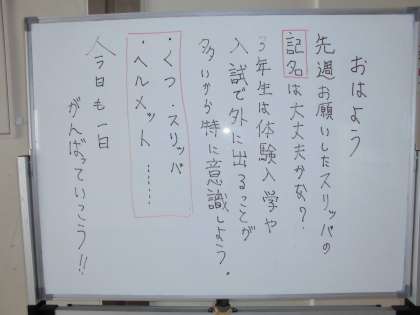 おはよう
先週お願いしたスリッパの
記名は大丈夫かな？
3年生は体験入学や
入試で外に出ることが
多いから特に意識しよう。
・くつ・スリッパ
・ヘルメット……
今日も一日
がんばっていこう!!